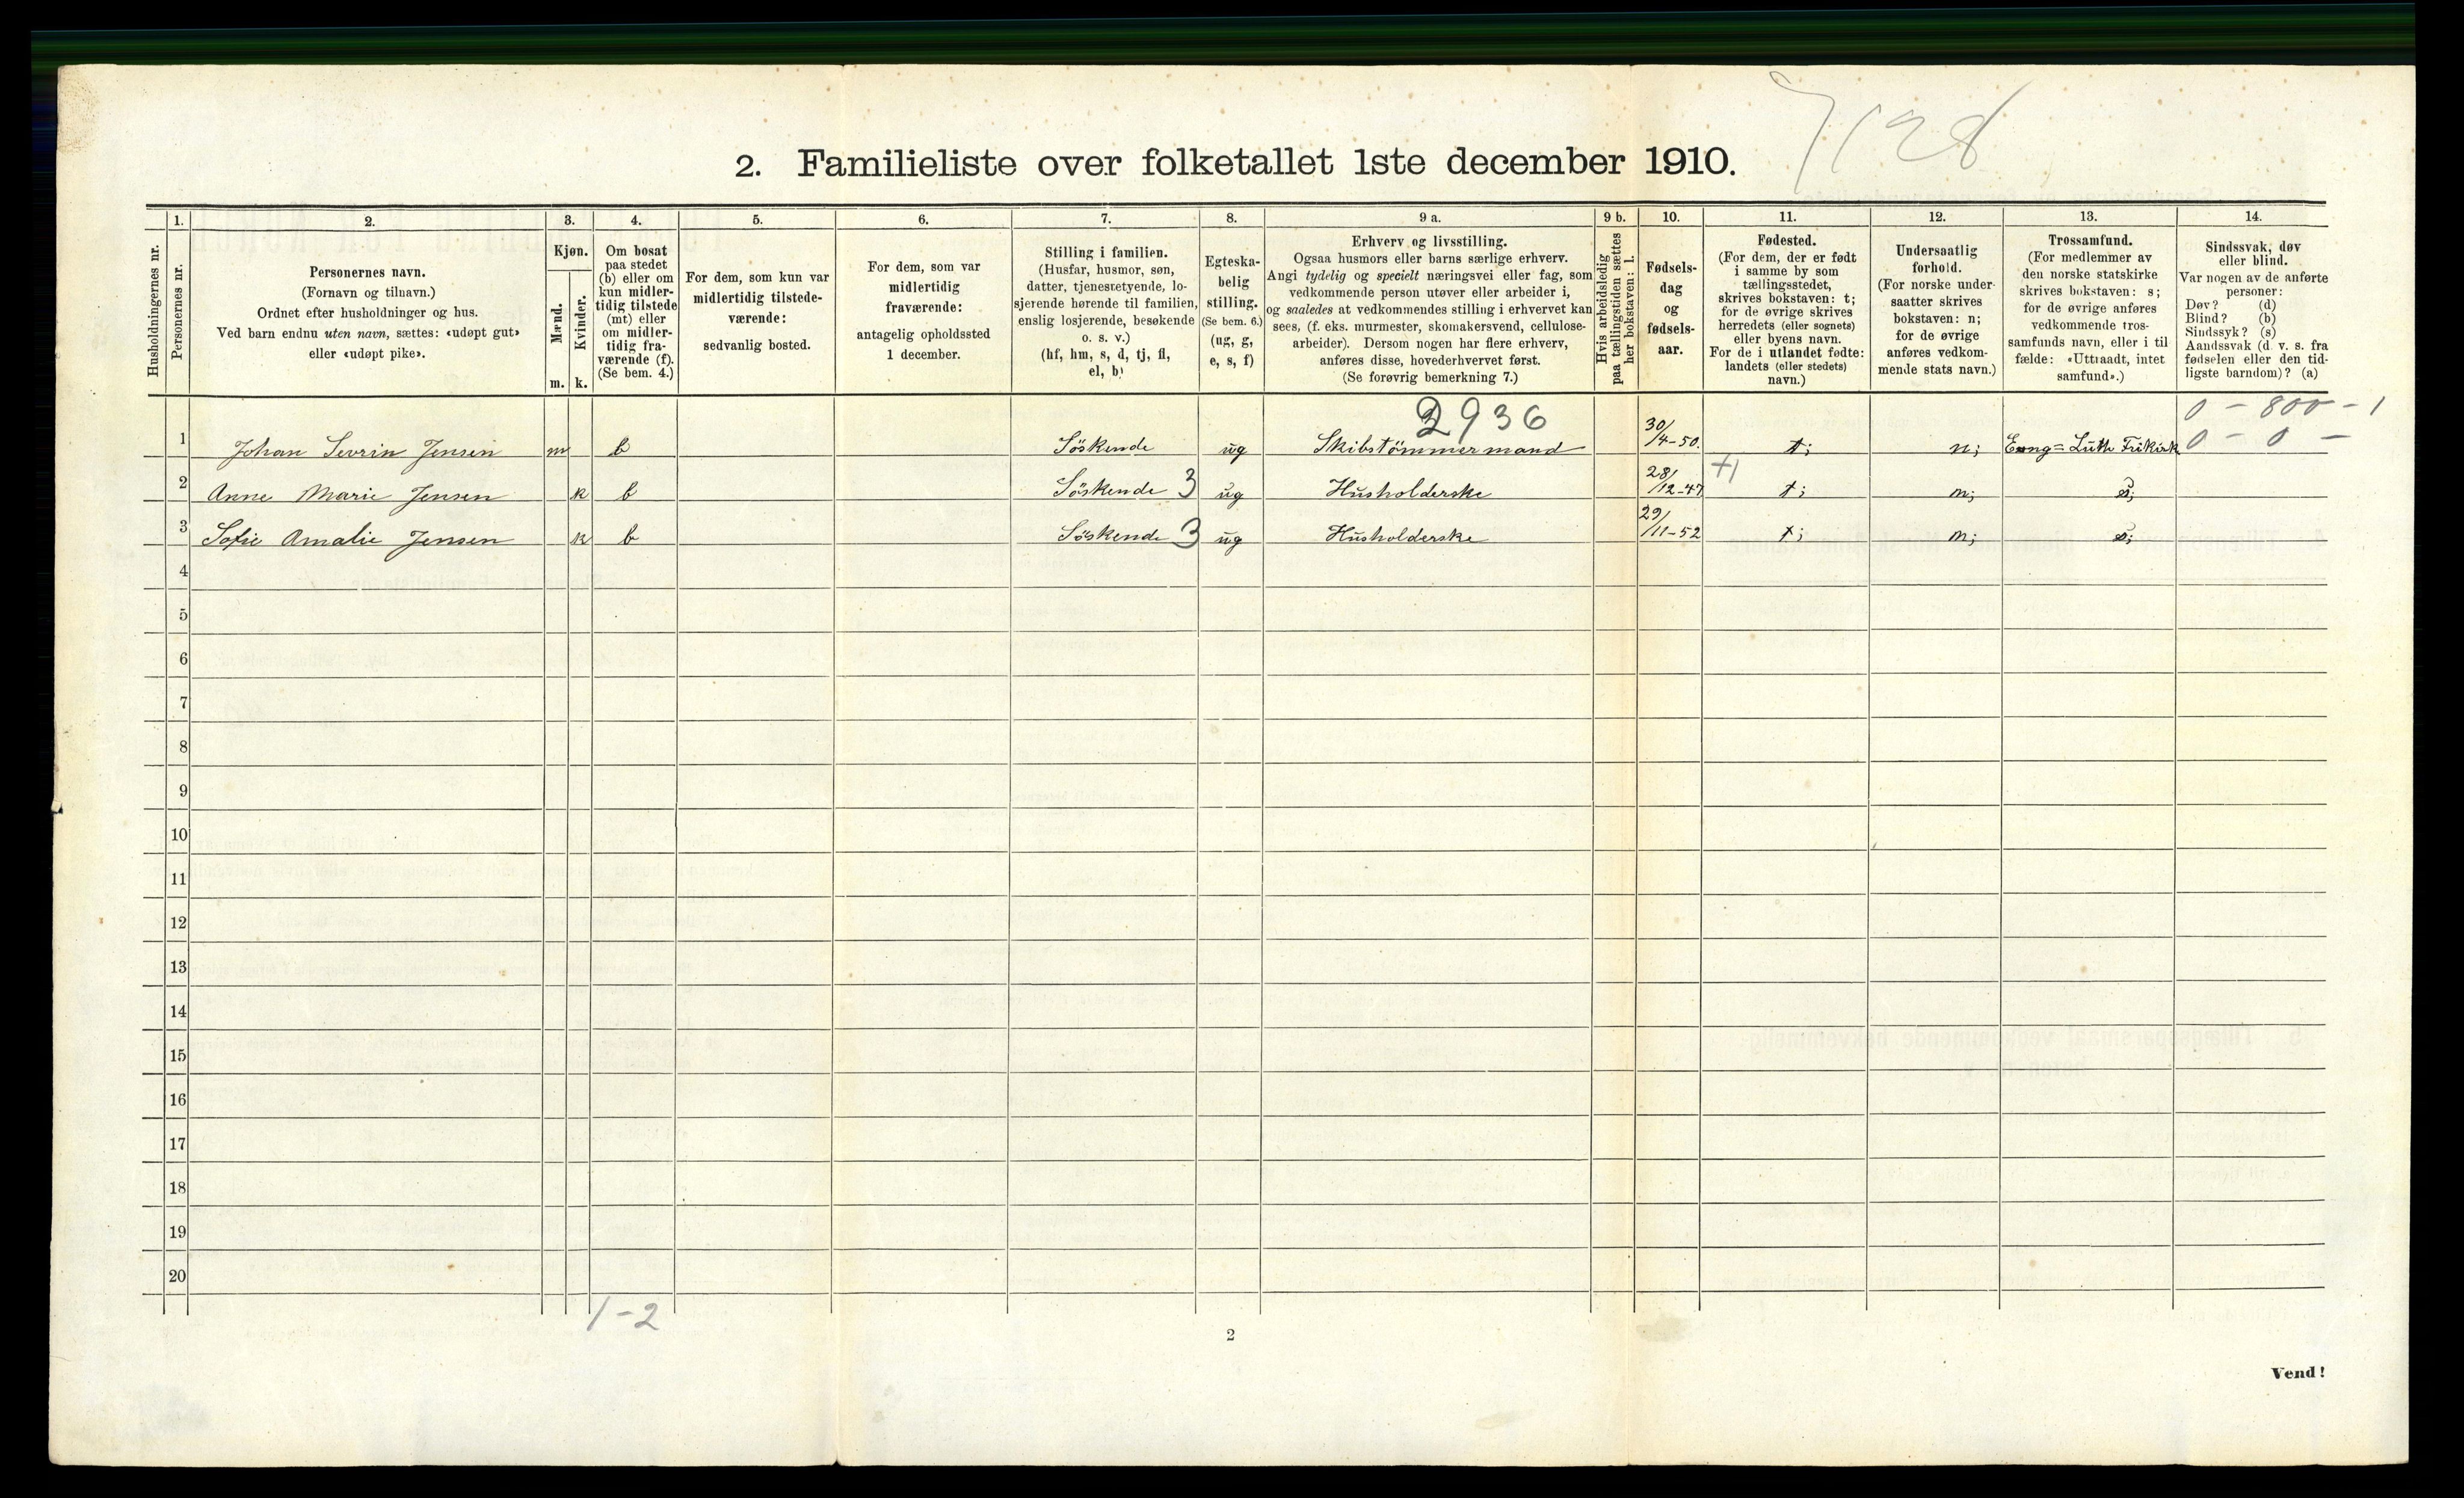 7128
2. Familieliste over folketallet 1ste december 1910.
Husholdningernes nr.
1.
Personernes nr.
2.
Personernes navn.
(Fornavn og tilnavn.)
Ordnet efter husholdninger og hus.
Ved barn endnu uten navn, sættes: «udøpt gut»
eller «udøpt pike».
3.
Kjøn.
Mænd.
Kvinder.
m. k.
4.
Om bosat
paa stedet
(b) eller om
kun midler-
tidig tilstede
(mt) eller
om midler-
tidig fra-
værende (f).
(Se bem. 4.)
5.
For dem, som kun var
midlertidig tilstede-
værende:
sedvanlig bosted.
6.
For dem, som var
midlertidig
fraværende:
antagelig opholdssted
1 december.
7.
Stilling i familien.
(Husfar, husmor, søn,
datter, tjenestetyende, lo-
sjerende hørende til familien,
enslig losjerende, besøkende
o. s. v.)
(hf, hm, s, d, tj, fl,
el, b)
8.
Egteska-
belig
stilling.
(Se bem. 6.)
(ug, g,
e, s, f)
9 a.
Erhverv og livsstilling.
Ogsaa husmors eller barns særlige erhverv.
Angi tydelig og specielt næringsvei eller fag, som
vedkommende person utøver eller arbeider i,
og saaledes at vedkommendes stilling i erhvervet kan
sees, (f. eks. murmester, skomakersvend, cellulose-
arbeider). Dersom nogen har flere erhverv,
anføres disse, hovederhvervet først.
(Se forøvrig bemerkning 7.)
9 b.
Hvis arbeidsledig
paa tællingstiden sættes
her bokstaven: l.
10.
Fødsels-
dag
og
fødsels-
aar.
11.
Fødested.
(For dem, der er født
i samme by som
tællingsstedet,
skrives bokstaven: t;
for de øvrige skrives
herredets (eller sognets)
eller byens navn.
For de i utlandet fødte:
landets (eller stedets)
navn.)
12.
Undersaatlig
forhold.
(For norske under-
saatter skrives
bokstaven: n;
for de øvrige
anføres vedkom-
mende stats navn.)
13.
Trossamfund.
(For medlemmer av
den norske statskirke
skrives bokstaven: s;
for de øvrige anføres
vedkommende tros-
samfunds navn, eller i til
fælde: «Uttraadt, intet
samfund».)
14.
Sindssvak, døv
eller blind.
Var nogen av de anførte
personer:
Døv? (d)
Blind? (b)
Sindssyk? (s)
Aandssvak (d. v. s. fra
fødselen eller den tid-
ligste barndom)? (a)
2936
0 - 800 - 1
0 - 0 -
1 Johan Sevrin Jensen m b Söskende ug Skibstömmermand 30/4-50. t; n; Evng=Luth Frikirk
2 Anne Marie Jensen k b Söskende 3 ug Husholderske 28/12-47 t; n; s;
3 Sofie Amalie Jensen k b Söskende 3 ug Husholderske 29/11-52 t; n; s;
4
5
6
7
8
9
10
11
12
13
14
15
16
17
18
19
20
1-2
2
Vend!